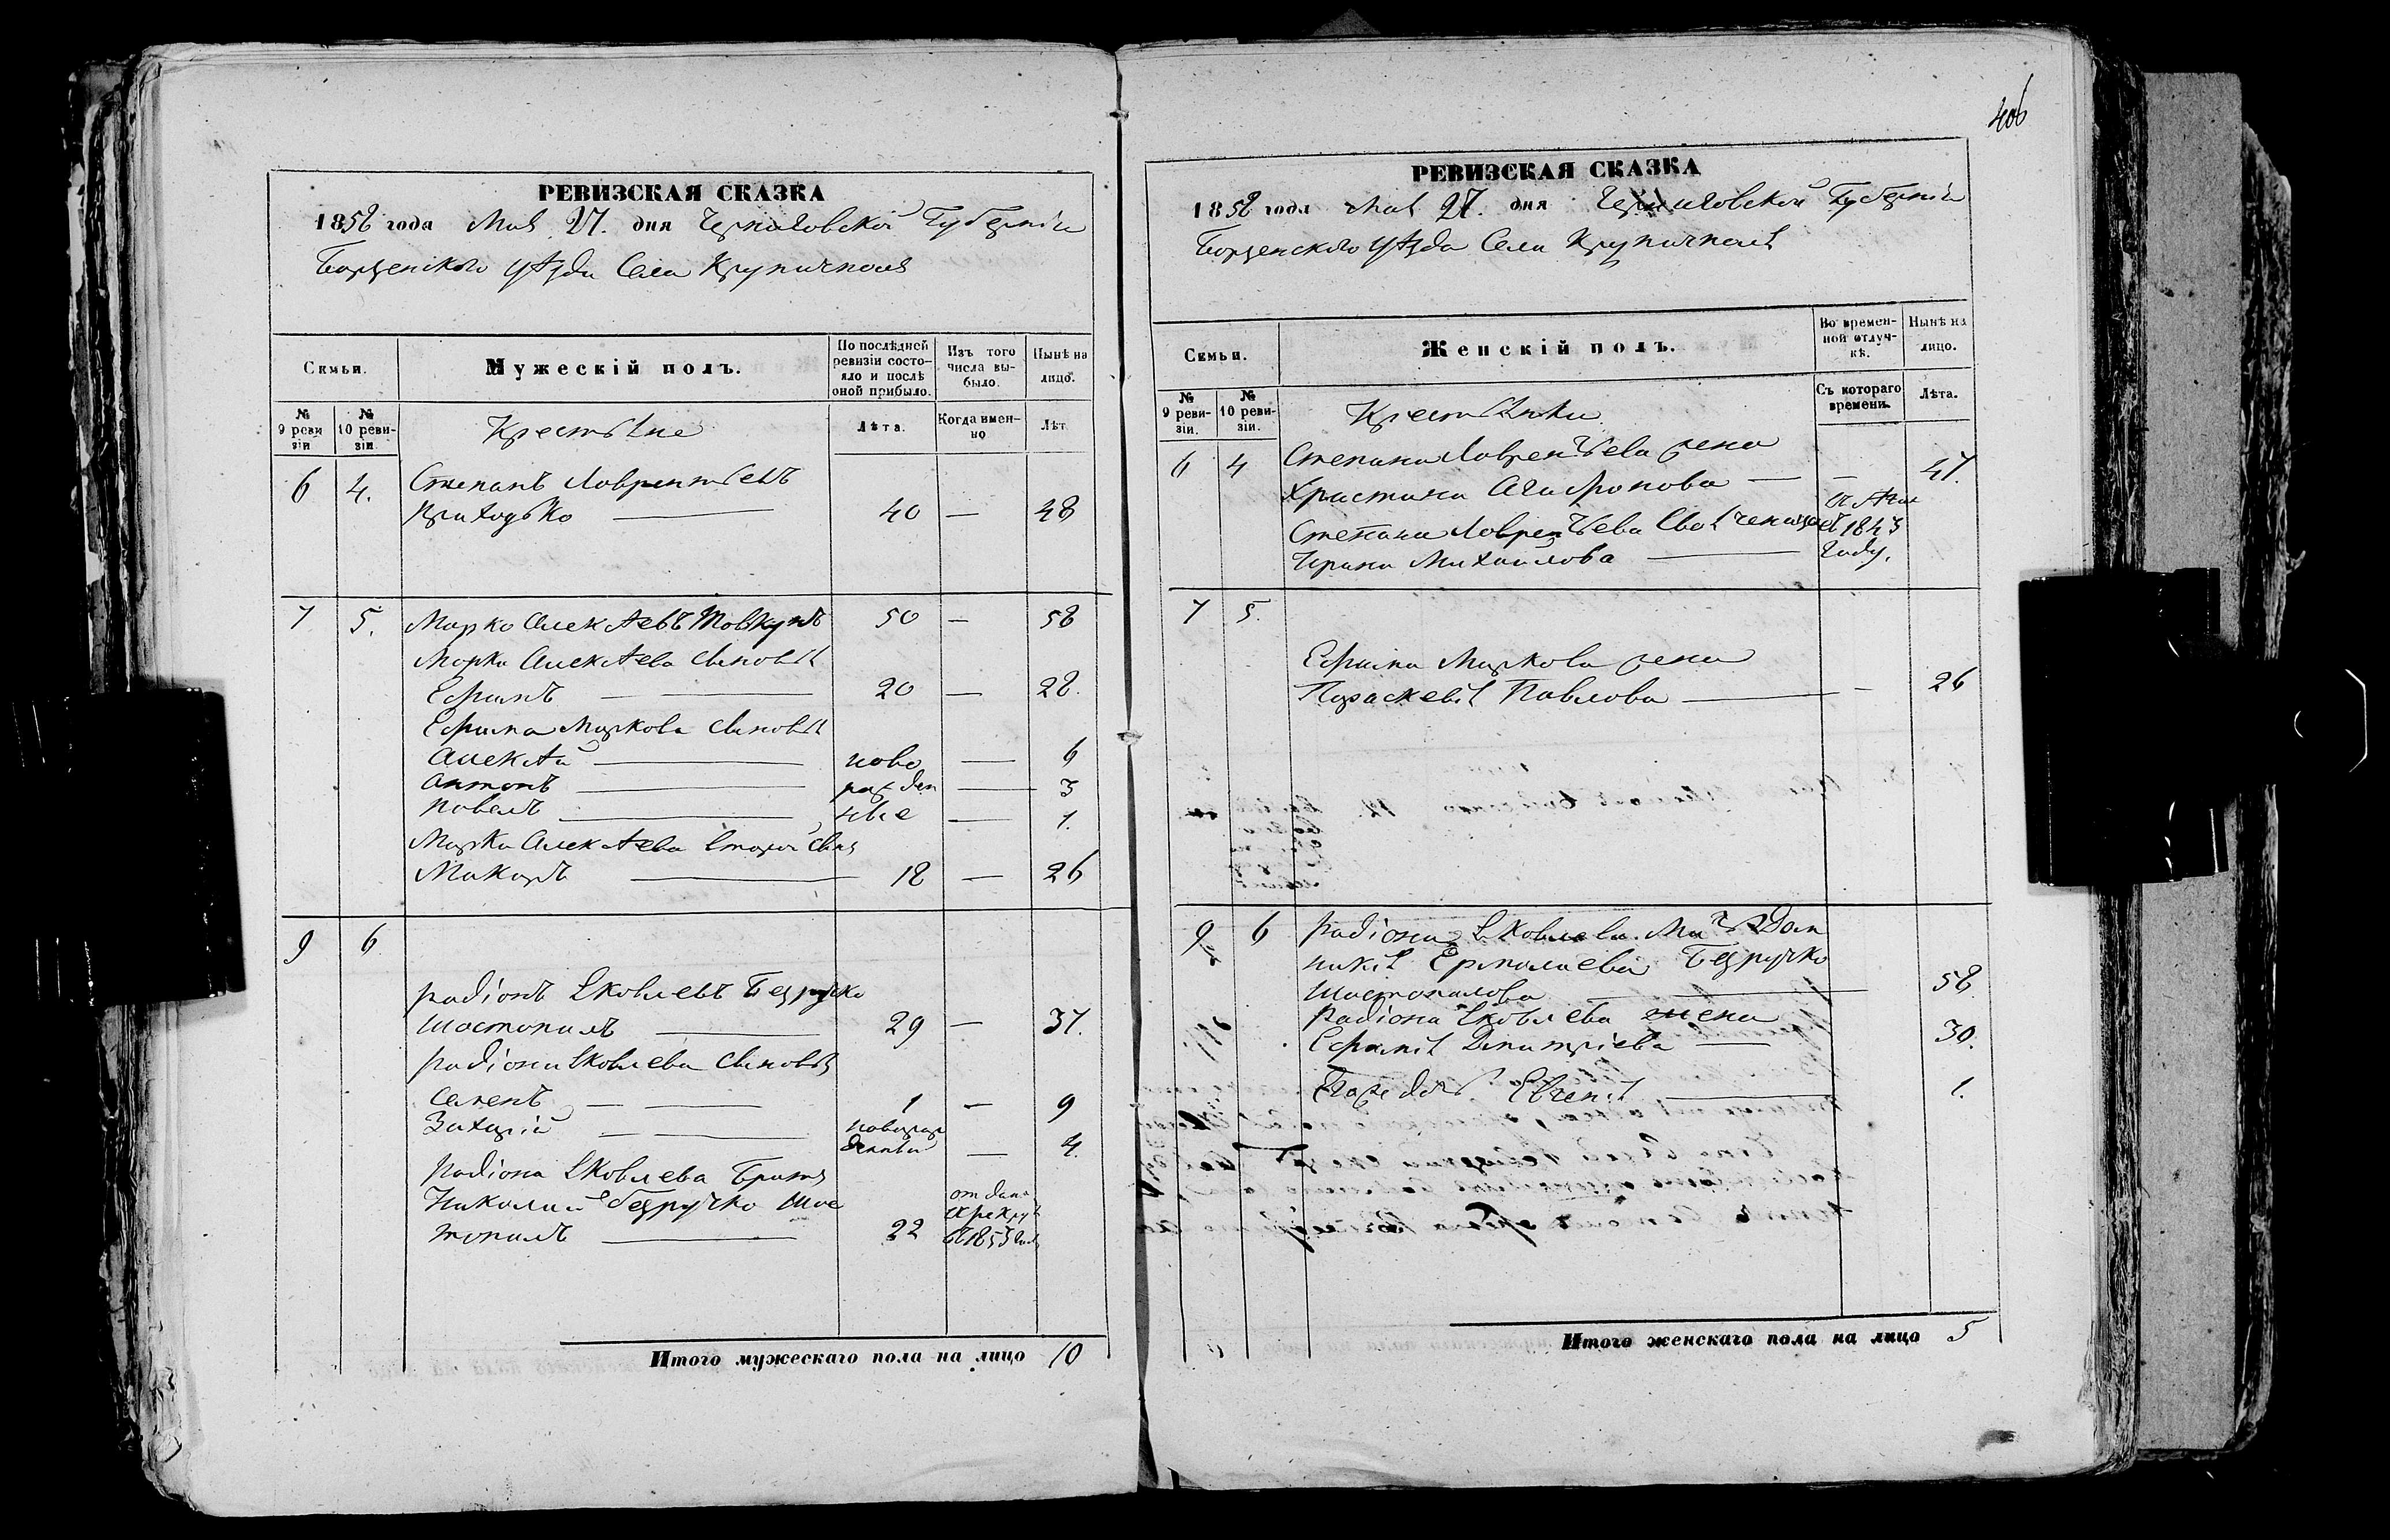 406
РЕВИЗСКАЯ СКАЗКА
1858 года Мая 27. дня Черниговской Губерніи
Борзенского уѣзда Села Крупичполя
Семьи.
Мужескій полъ.
По послѣдней ревизіи состояло и послѣ оной прибыло.
Изъ того числа выбыло.
Нынѣ на лицо.
№ 9 ревизіи
№ 10 ревизіи.
Крестьяне
Лѣта.
Когда именно
Лѣт
6 4. Степанъ Лаврентьевъ
Приходько 40 — 48
7 5. Марко Алексѣевъ Товкунъ 50 — 58
Марка Алексѣева сыновья
Ефимъ 20 — 28.
Ефима Маркова сыновья
Алексѣй ново — 6
Антонъ рожден — 3
Павелъ ные — 1.
Марка Алексѣева второй сынъ
Макаръ 18 — 26
9 6
Радіонъ Яковлевъ Безручко
Шостопалъ 29 — 37.
Радіона Яковлева сыновья
Семенъ 1 — 9
Захарій новорож
денный — 4.
Радіона Яковлева братъ
Николай Безручко Шос
топалъ 22 отдан
в рекруты
въ 1853 году
Итого мужескаго пола на лицо 10
РЕВИЗСКАЯ СКАЗКА
1858 года Мая 27. дня Черниговской Губерніи
Борзенского уѣзда Села Крупичполя
Семьи.
Женскій полъ.
Во временной отлучкѣ.
Нынѣ на лицо.
№ 9 ревизіи.
№ 10 ревизіи.
Крестьянки
Съ котораго времени.
Лѣта.
6 4 Степана Лаврентьева жена
Христина Агафонова — — 47.
Степана Лаврентьева
въ 1843
Ирина Михайлова году.
7 5.
Ефима Маркова жена
Параскевія Павлова — 26
9 6 Радіона Яковлева мать Дом
никія Ермолаева Безручко
Шостопалова 58
Радіона Яковлева жена
Ефимія Дмитріева 30.
Его же дочь Евгенія 1.
Итого женскаго пола на лицо 5